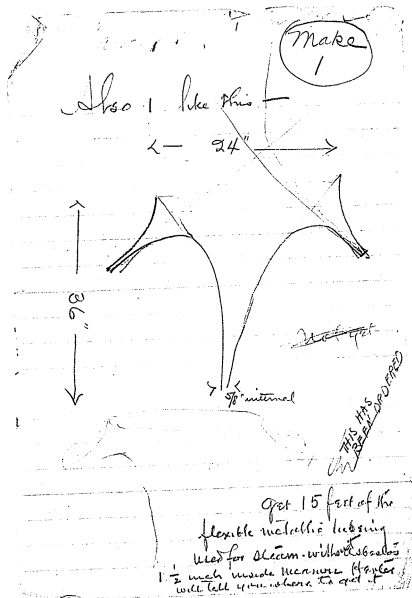 Make
1
Also 1 like this —
24"
36"
Not yet
5/8" internal
THIS HAS
BEEN ORDERED
Get 15 feet of the
flexible metallic tubing
used for steam - without asbestos
1 1/2 inch inside measure
will tell you where to get it